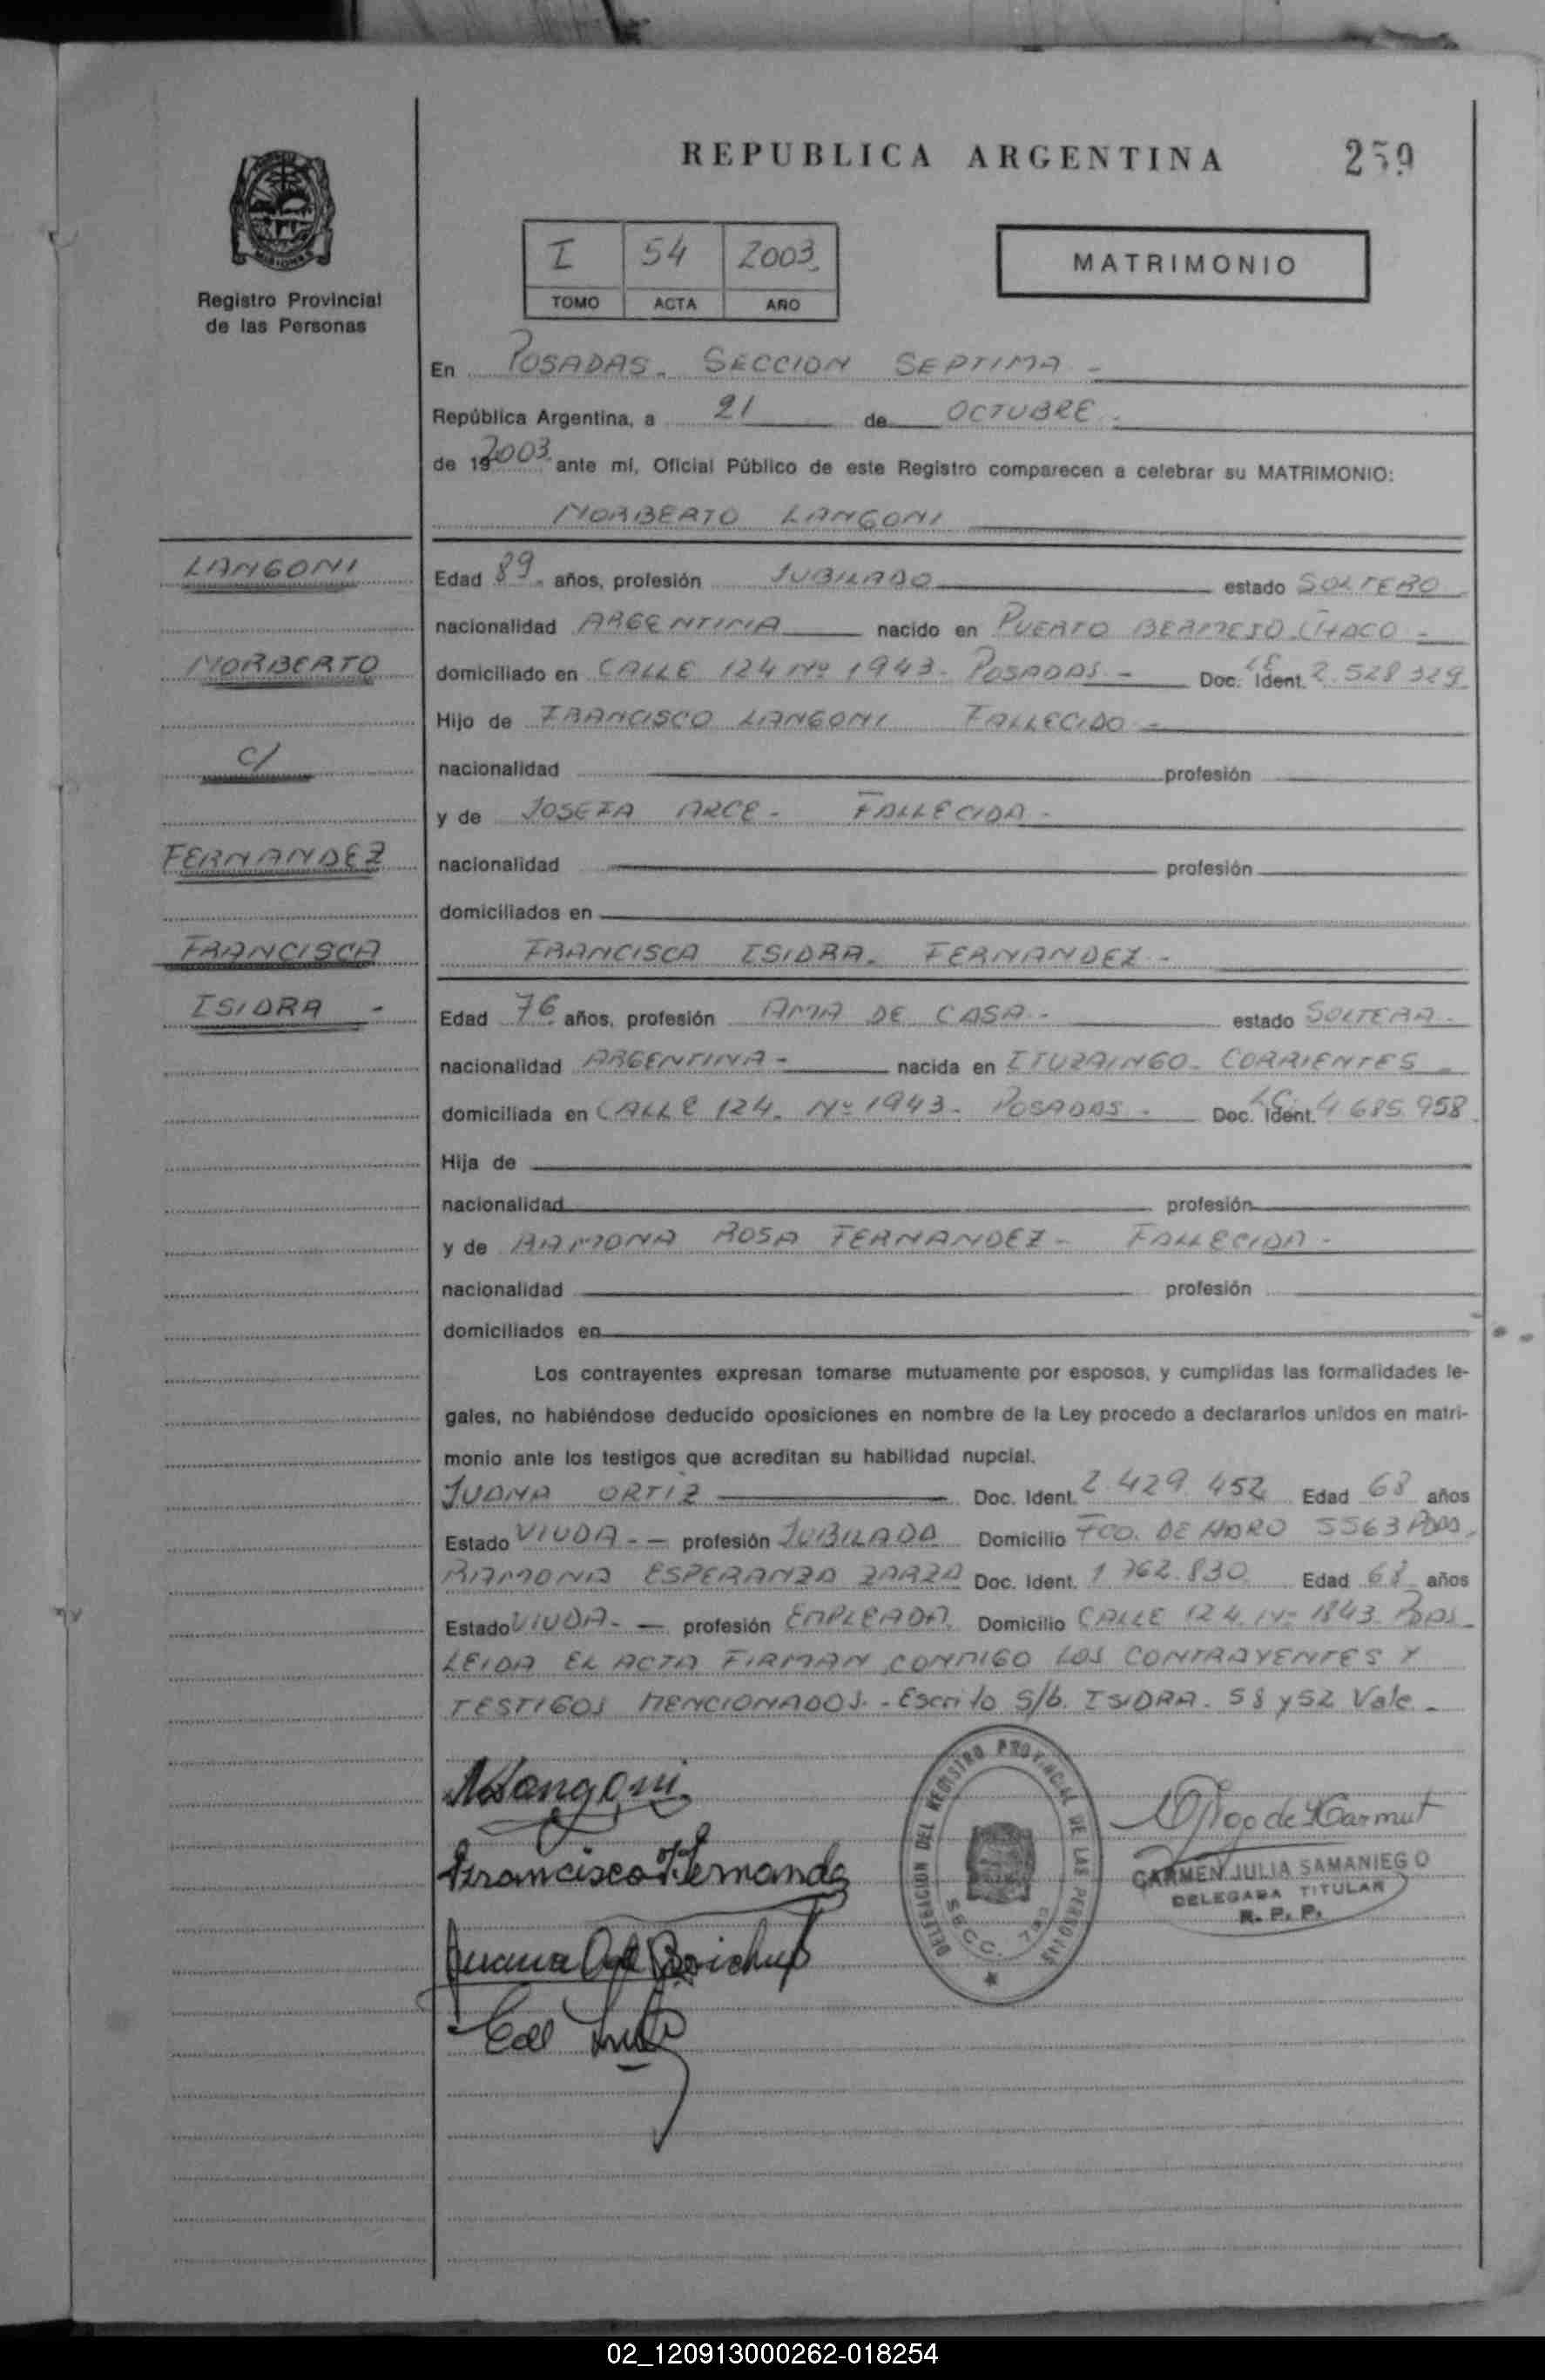 REPUBLICA ARGENTINA
259
MISIONES
Registro Provincial
de las Personas
I 54 2003
TOMO ACTA AÑO
MATRIMONIO
En POSADAS. SECCION SEPTIMA -
República Argentina, a 21 de OCTUBRE.
de 19 2003 ante mí, Oficial Público de este Registro comparecen a celebrar su MATRIMONIO:
NORBERTO LANGONI
LANGONI
NORBERTO
C/
FERNANDEZ
FRANCISCA
ISIDRA -
Edad 89. años, profesión JUBILADO estado SOLTERO
nacionalidad ARGENTINA nacido en PUERTO BERMEJO CHACO -
domiciliado en CALLE 124 Nº 1943. POSADAS - Doc. Ident. LE 2.528.329
Hijo de FRANCISCO LANGONI FALLECIDO -
nacionalidad profesión
y de JOSEFA ARCE - FALLECIDA -
nacionalidad profesión
domiciliados en
FRANCISCA ISIDRA. FERNANDEZ -
Edad 76 años, profesión AMA DE CASA - estado SOLTERA -
nacionalidad ARGENTINA - nacida en ITUZAINGO - CORRIENTES
domiciliada en CALLE 124. Nº 1943. POSADAS - Doc. Ident. LC 4 685 958
Hija de
nacionalidad profesión
y de RAMONA ROSA FERNANDEZ - FALLECIDA -
nacionalidad profesión
domiciliados en
Los contrayentes expresan tomarse mutuamente por esposos, y cumplidas las formalidades le-
gales, no habiéndose deducido oposiciones en nombre de la Ley procedo a declararlos unidos en matri-
monio ante los testigos que acreditan su habilidad nupcial.
JUANA ORTIZ Doc. Ident. 2.429.452 Edad 68 años
Estado VIUDA - - profesión JUBILADA Domicilio FCO. DE HARO 5563 PDAS.
RAMONA ESPERANZA ZARZA Doc. Ident. 1 762.830 Edad 68 años
Estado VIUDA - - profesión EMPLEADA. Domicilio CALLE 124. Nº 1843. PDAS
LEIDA EL ACTA FIRMAN CONMIGO LOS CONTRAYENTES Y
TESTIGOS MENCIONADOS. - Escrito S/b. ISIDRA. 58 y 52 Vale -
NLangoni
Francisca I Fernandez
Juana O de
DELEGACION DEL REGISTRO PROVINCIAL DE LAS PERSONAS
SECC. 7ma
CARMEN JULIA SAMANIEGO
DELEGADA TITULAR
R. P. P.
02_120913000262-018254